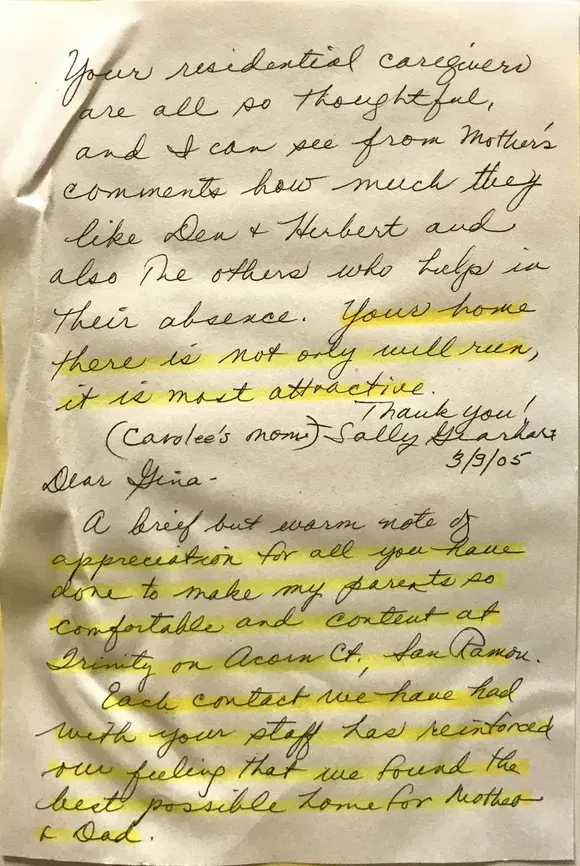 Your residential caregivers
are all so thoughtful,
and I can see from Mother's
comments how much they
like Den & Herbert and
also the others who help in
their absence. Your home
there is not only will run,
it is most attractive.
Thank you!
(Carolee's mom) Sally Gearhart
3/9/05
Dear Gina-
A brief but warm note of
appreciation for all you have
done to make my parents so
comfortable and content at
Trinity on Acorn Ct., San Ramon.
Each contact we have had
with your staff has reinforced
our feeling that we found the
best possible home for Mother
& Dad.